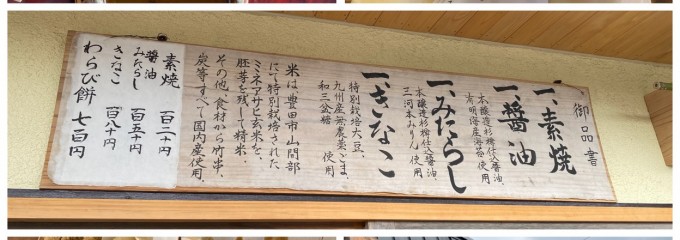 御品書
一、素焼
一、醤油
本醸造杉樽仕込醤油、
有明海産海苔 使用
一、みたらし
本醸造杉樽仕込醤油、
三河本みりん 使用
一、きなこ
特別栽培大豆、
九州産無農薬ごま、
和三盆糖 使用
米は、豊田市山間部
にて特別栽培された
ミネアサヒ玄米を、
胚芽を残して精米。
その他、食材から竹串、
炭等すべて国内産使用。
素焼 百二十円
醤油
みたらし 百五十円
きなこ 百八十円
わらび餅 七百円